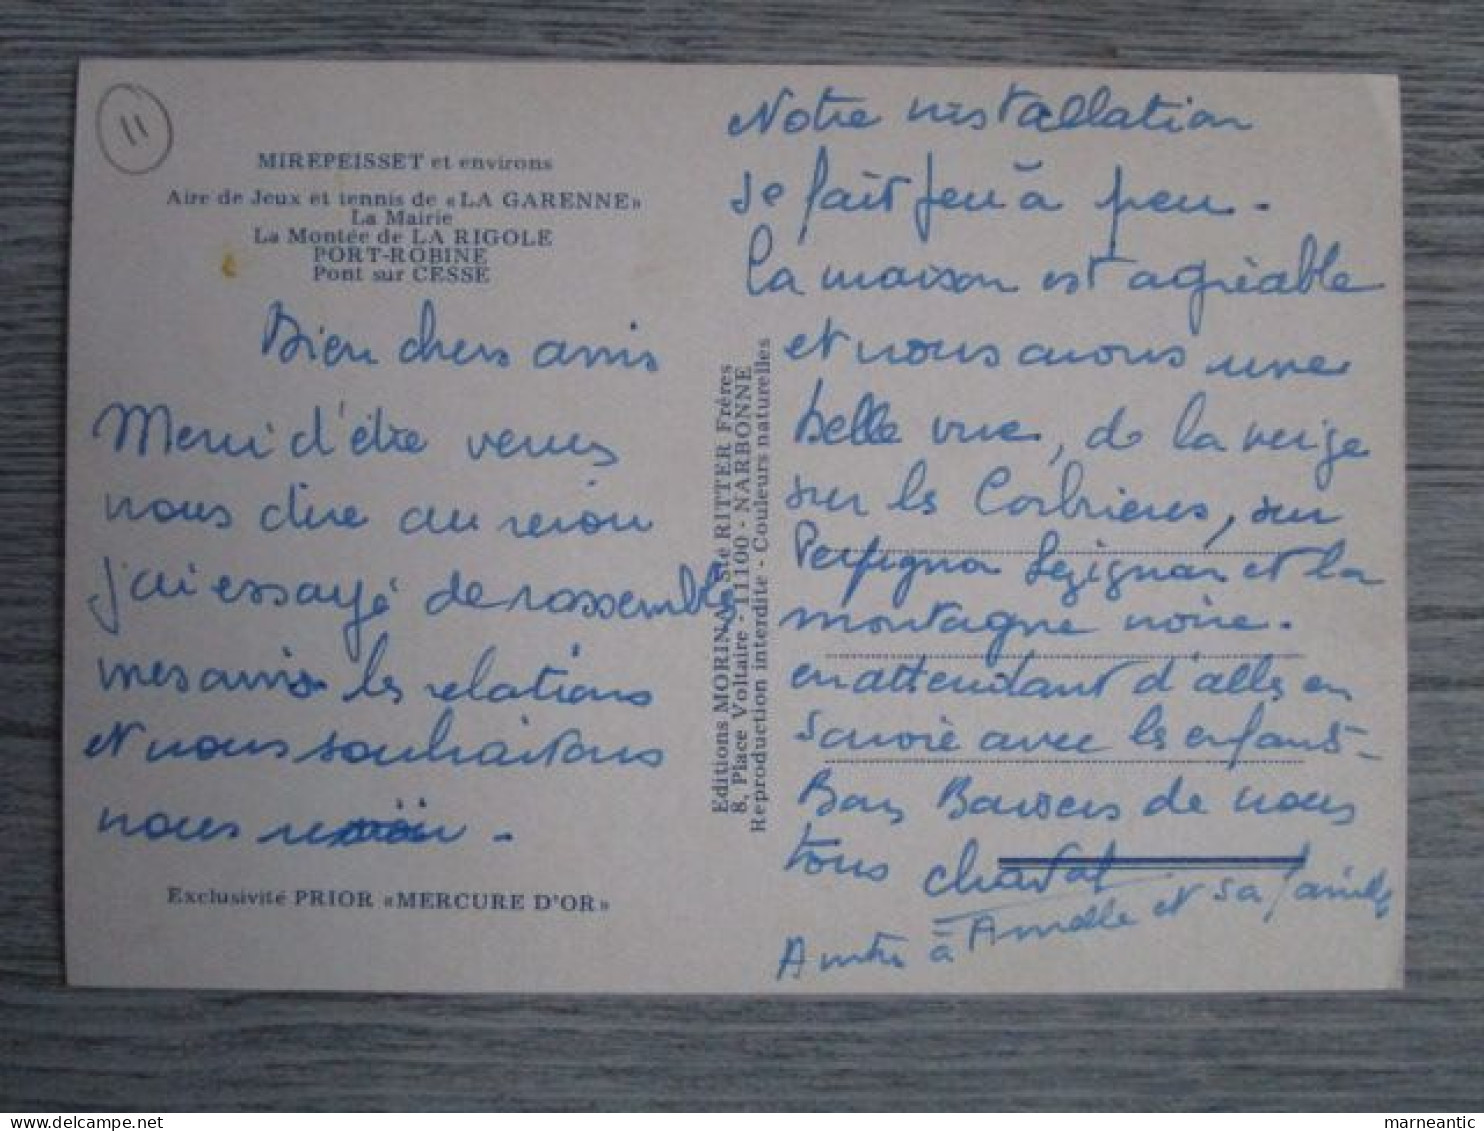 11
MIREPEISSET et environs
Aire de Jeux et tennis de «LA GARENNE»
La Mairie
La Montée de LA RIGOLE
PORT-ROBINE
Pont sur CESSE
Bien chers amis
Merci d'être venus
nous dire au revoir
j'ai essayé de rassembler
mes amis les relations
et nous souhaitons
nous revoir.
Exclusivité PRIOR «MERCURE D'OR»
Editions MORINA, Sté RITTER Frères
8, Place Voltaire - 11100 - NARBONNE
Reproduction interdite - Couleurs naturelles
Notre installation
se fait peu à peu.
La maison est agréable
et nous avons une
belle vue, de la neige
sur les Corbières, sur
Perpignan Lézignan et la
montagne noire.
en attendant d'aller en
Savoie avec les enfants-
Bons Baisers de nous
tous
Amitiés à Armelle et sa famille
marneantic